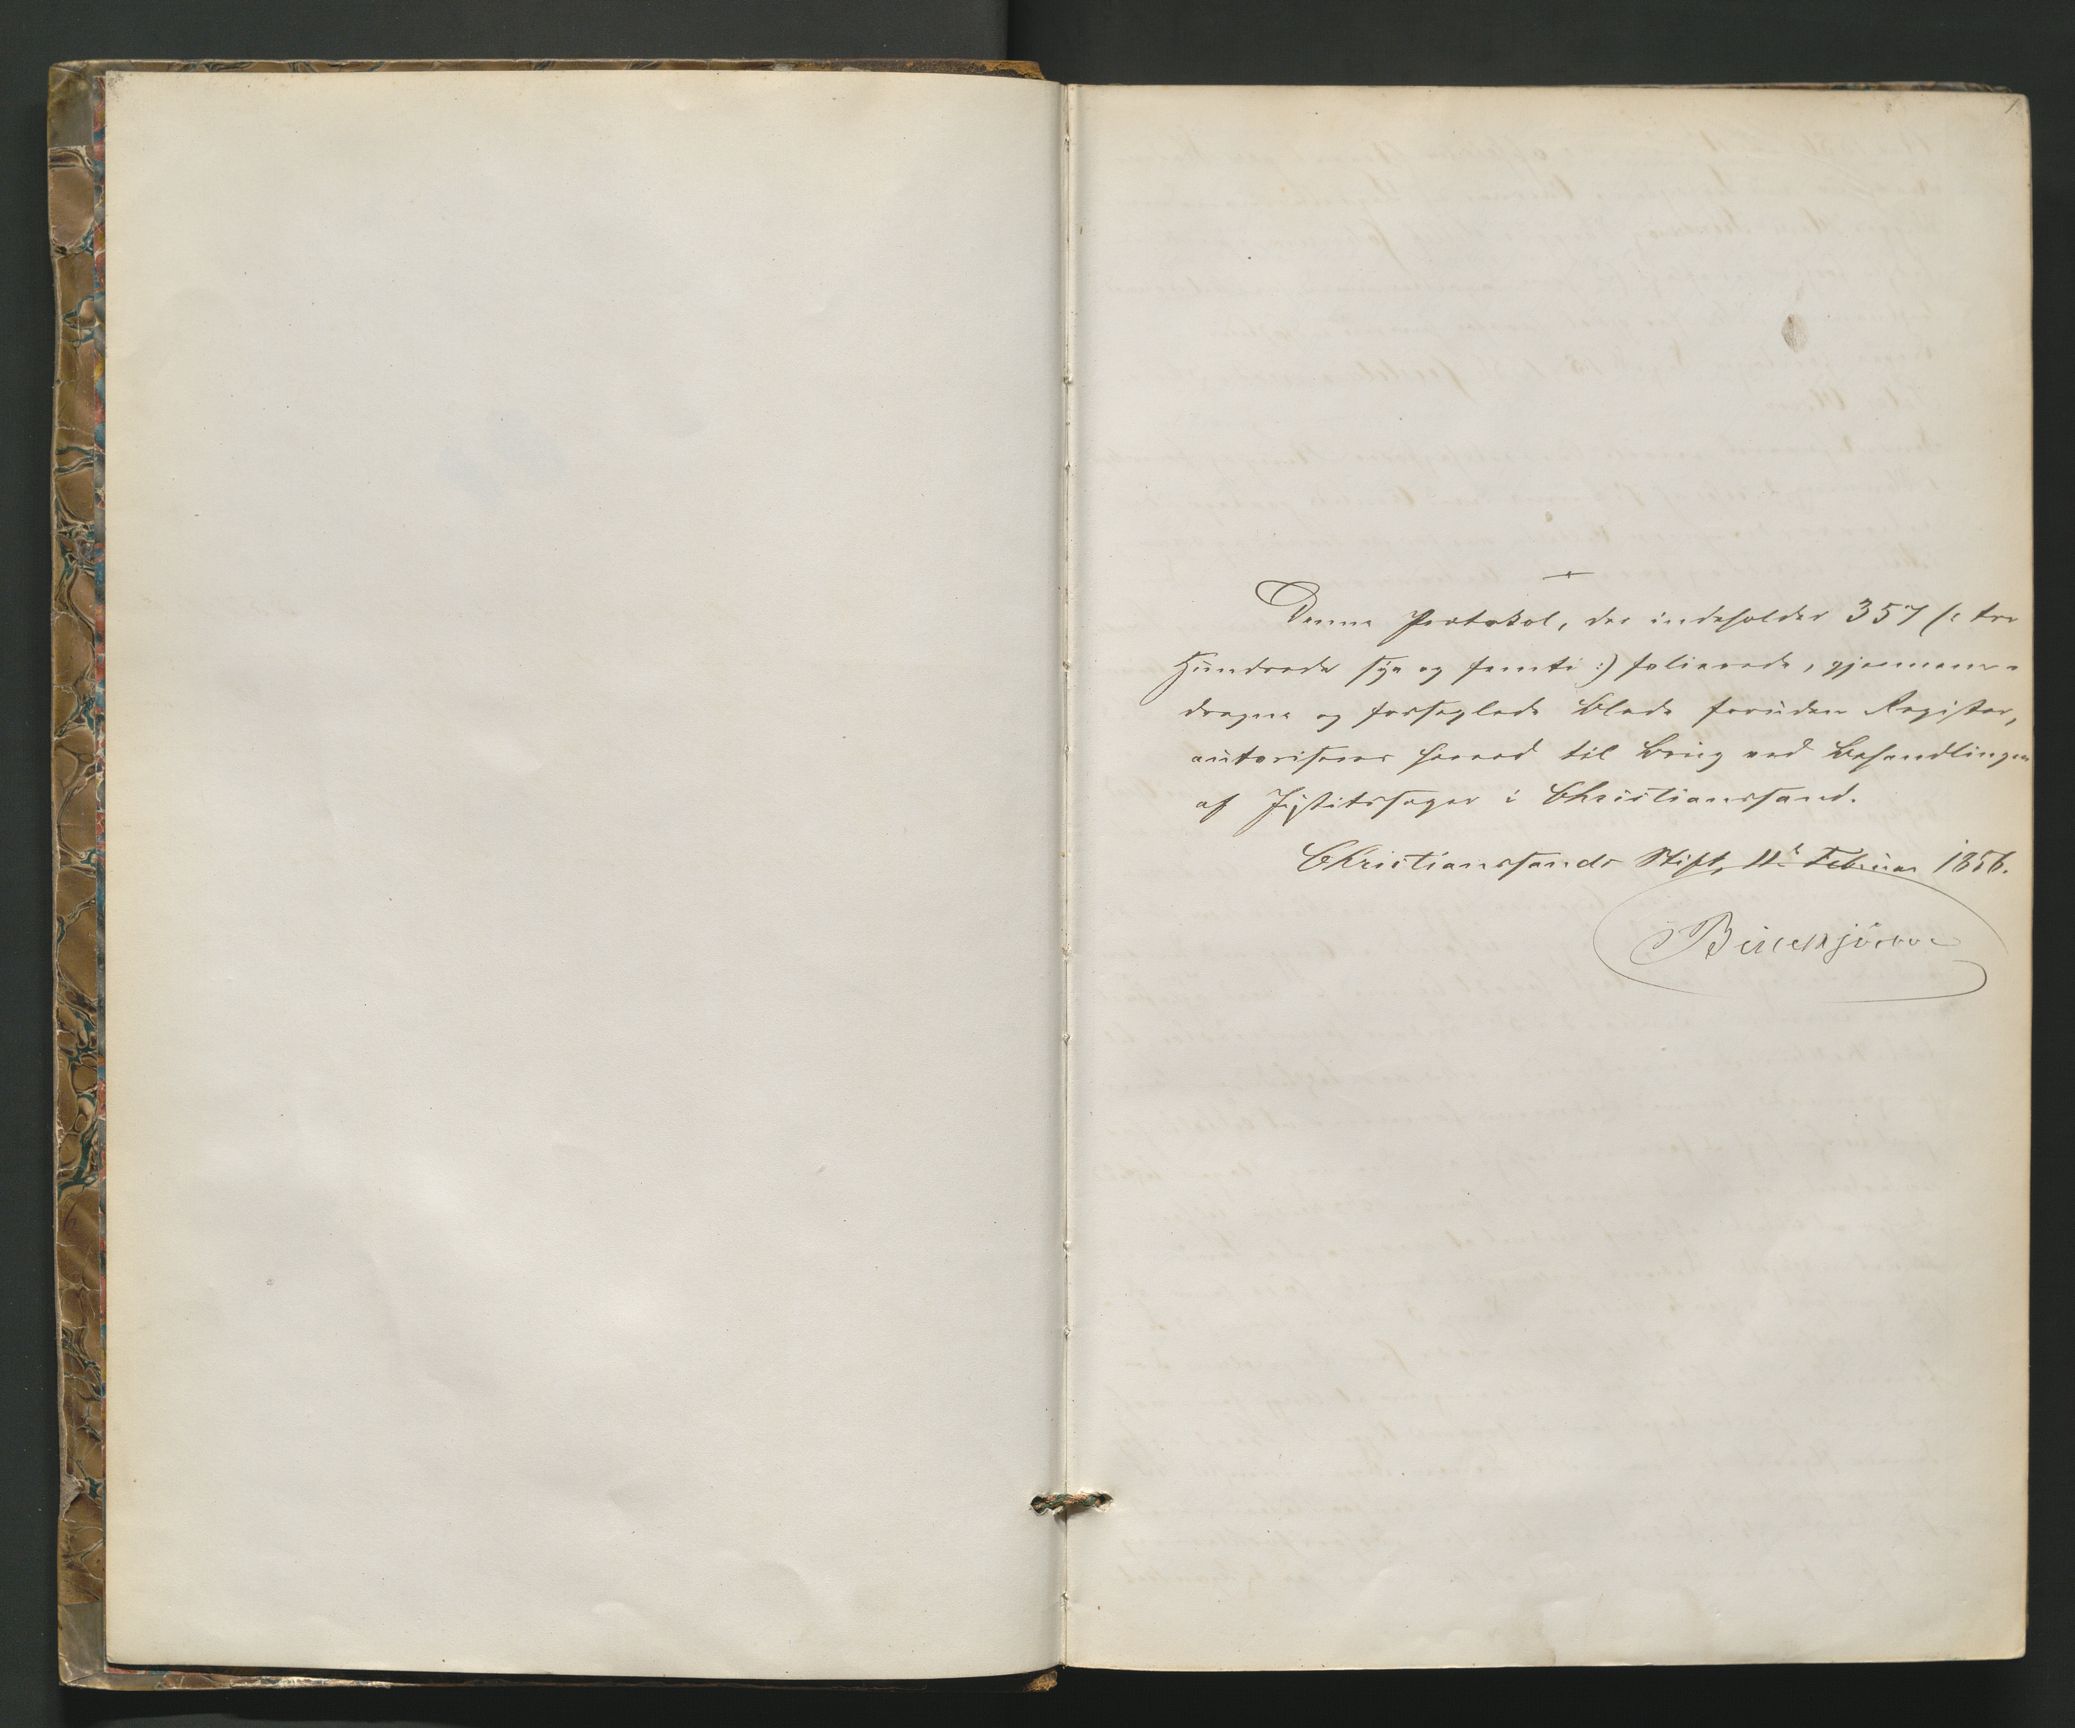 1
Denne Protokol, der indeholder 357 (: tre
Hundrede syv og femti :) folierede, gjennem-
dragne og forseglede Blade foruden Register,
autoriseres herved til Brug ved Behandlingen
af Justitssager i Christianssand.
Christianssands Stift, 11te Februar 1856.